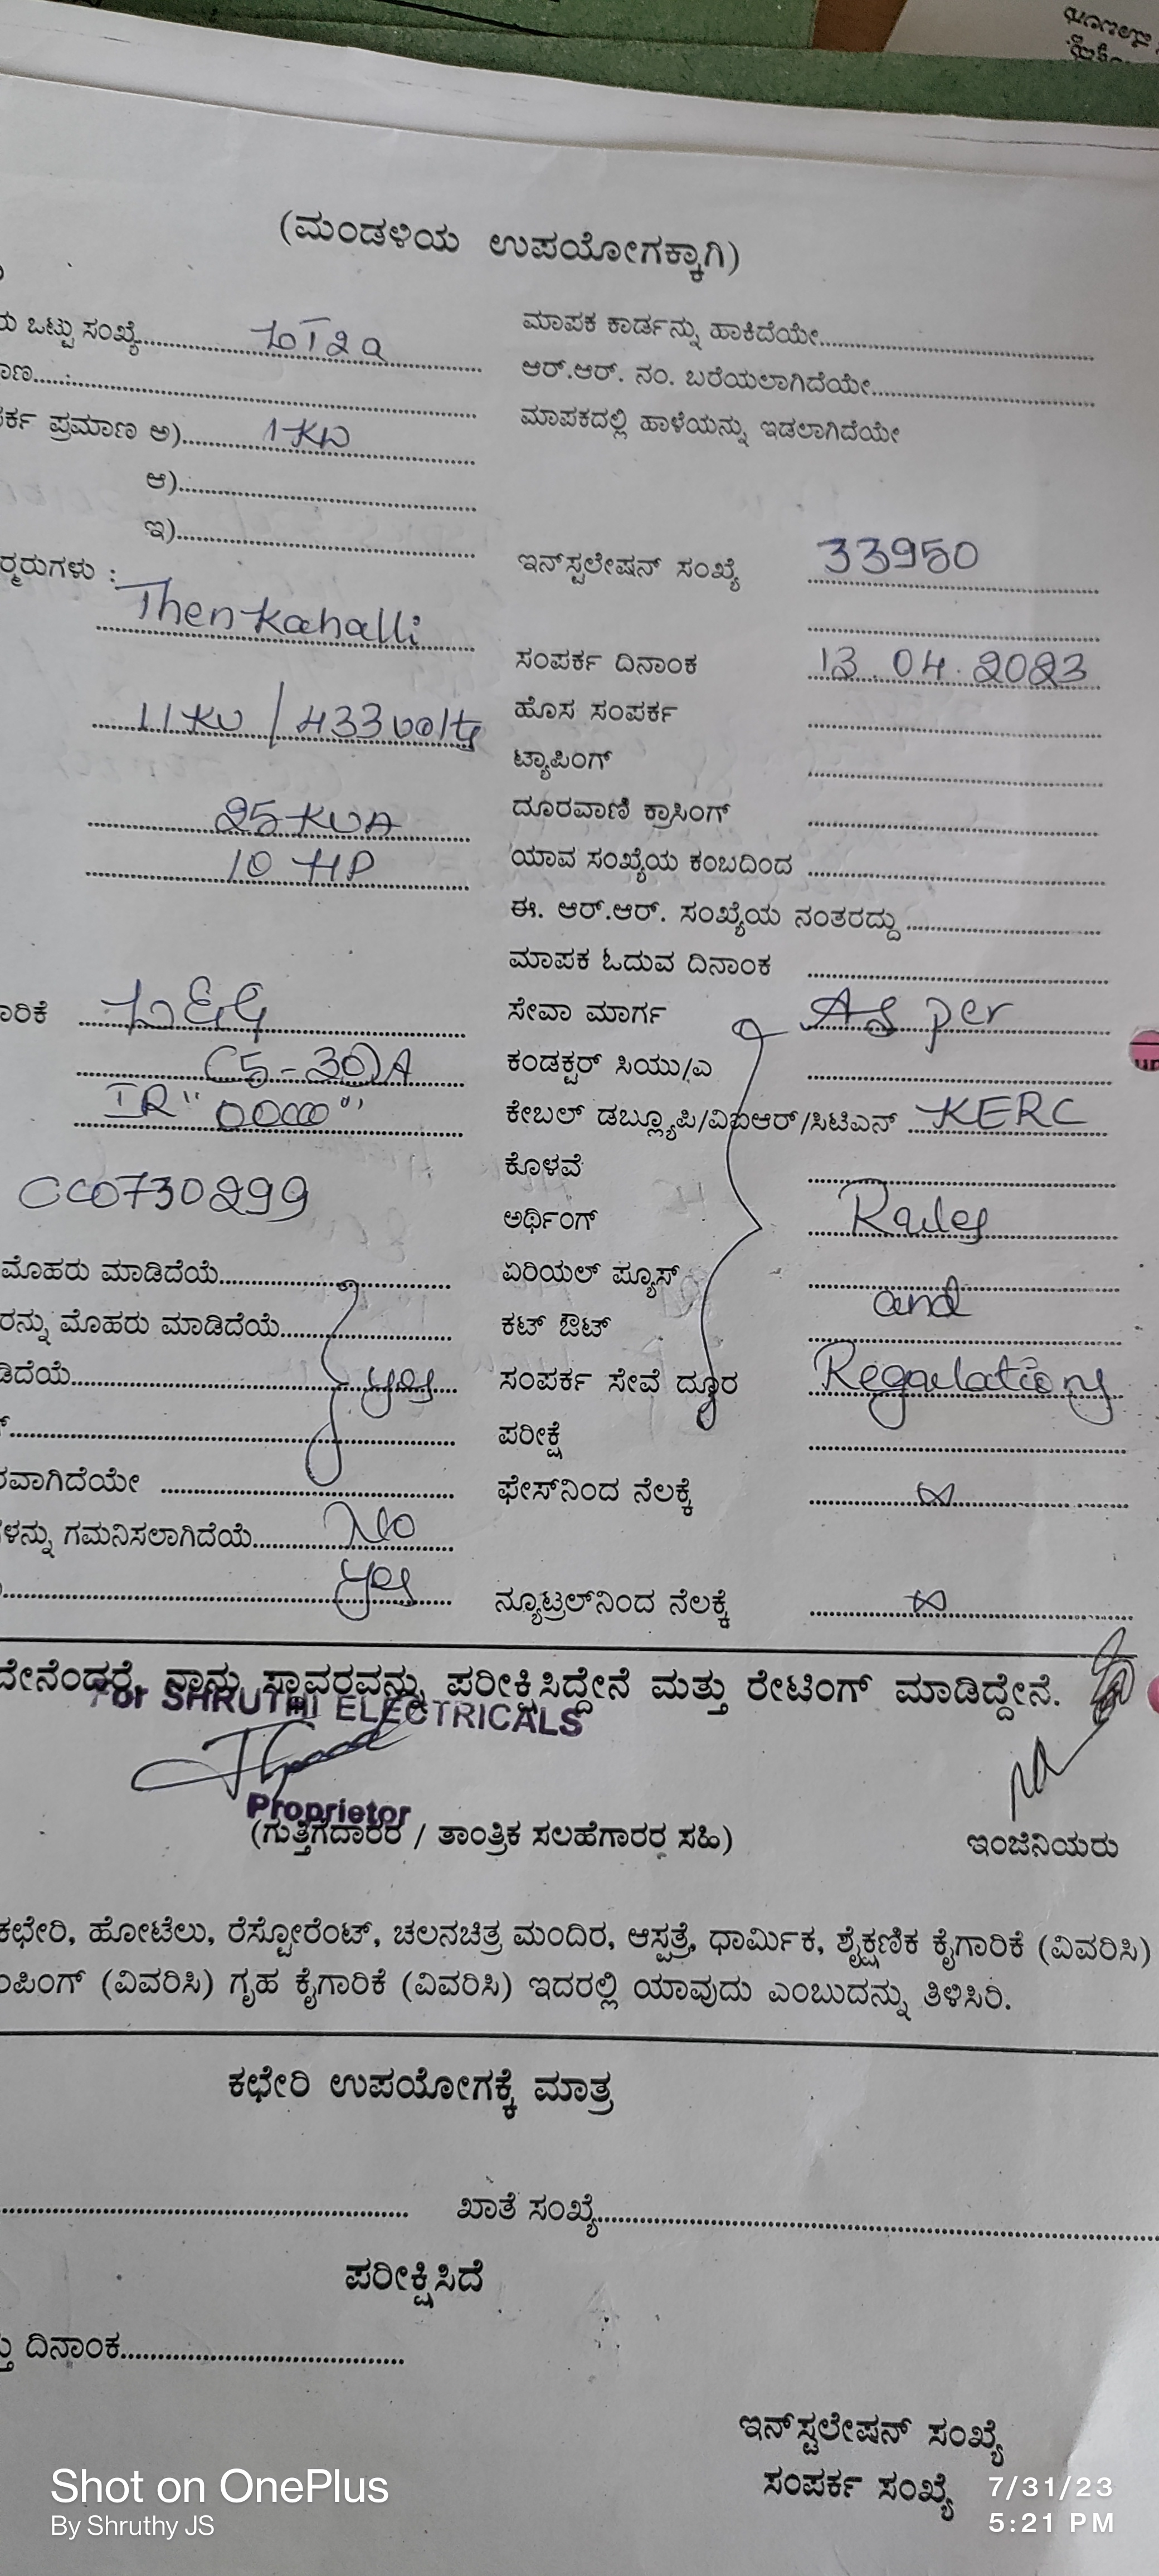 (ಮಂಡಳಿಯ ಉಪಯೋಗಕ್ಕಾಗಿ)
ಯ ಒಟ್ಟು ಸಂಖ್ಯೆ
ಮಾಪಕ ಕಾರ್ಡನ್ನು ಹಾಕಿದೆಯೇ
ಆರ್.ಆರ್. ನಂ. ಬರೆಯಲಾಗಿದೆಯೇ
ರ್ಕ ಪ್ರಮಾಣ ಅ) 1 KW
ಮಾಪಕದಲ್ಲಿ ಹಾಳೆಯನ್ನು ಇಡಲಾಗಿದೆಯೇ
ಆ)
ಇ)
ರ್ಮರುಗಳು :
ಇನ್‌ಸ್ಟಲೇಷನ್ ಸಂಖ್ಯೆ 33950
Thenkahalli
ಸಂಪರ್ಕ ದಿನಾಂಕ 13.04.2023
11 KV / 433 volts ಹೊಸ ಸಂಪರ್ಕ
ಟ್ಯಾಪಿಂಗ್
25 KVA ದೂರವಾಣಿ ಕ್ರಾಸಿಂಗ್
10 HP ಯಾವ ಸಂಖ್ಯೆಯ ಕಂಬದಿಂದ
ಈ. ಆರ್.ಆರ್. ಸಂಖ್ಯೆಯ ನಂತರದ್ದು
ಮಾಪಕ ಓದುವ ದಿನಾಂಕ
ಾರಿಕೆ L&G ಸೇವಾ ಮಾರ್ಗ As per
(5-30)A ಕಂಡಕ್ಟರ್ ಸಿಯು/ಎ
IR "0000" ಕೇಬಲ್ ಡಬ್ಲ್ಯೂಪಿ/ವಿಐಆರ್/ಸಿಟಿಎನ್ KERC
ಕೊಳವೆ
CC0730299 ಅರ್ಥಿಂಗ್ Rules
ಮೊಹರು ಮಾಡಿದೆಯೆ ಏರಿಯಲ್ ಪ್ಯೂಸ್ and
ರನ್ನು ಮೊಹರು ಮಾಡಿದೆಯೆ ಕಟ್ ಔಟ್
ಡಿದೆಯೆ yes ಸಂಪರ್ಕ ಸೇವೆ ದ್ದೂರ Regulations
ಪರೀಕ್ಷೆ
ರವಾಗಿದೆಯೇ ಫೇಸ್‌ನಿಂದ ನೆಲಕ್ಕೆ ∞
ಳನ್ನು ಗಮನಿಸಲಾಗಿದೆಯೆ No
yes ನ್ಯೂಟ್ರಲ್‌ನಿಂದ ನೆಲಕ್ಕೆ ∞
ದೇನೆಂದರೆ, ನಾನು ಸ್ಥಾವರವನ್ನು ಪರೀಕ್ಷಿಸಿದ್ದೇನೆ ಮತ್ತು ರೇಟಿಂಗ್ ಮಾಡಿದ್ದೇನೆ.
For SHRUTHI ELECTRICALS
Proprietor
(ಗುತ್ತಿಗೆದಾರರ / ತಾಂತ್ರಿಕ ಸಲಹೆಗಾರರ ಸಹಿ) ಇಂಜಿನಿಯರು
ಕಛೇರಿ, ಹೋಟೆಲು, ರೆಸ್ಟೋರೆಂಟ್, ಚಲನಚಿತ್ರ ಮಂದಿರ, ಆಸ್ಪತ್ರೆ, ಧಾರ್ಮಿಕ, ಶೈಕ್ಷಣಿಕ ಕೈಗಾರಿಕೆ (ವಿವರಿಸಿ)
ಂಪಿಂಗ್ (ವಿವರಿಸಿ) ಗೃಹ ಕೈಗಾರಿಕೆ (ವಿವರಿಸಿ) ಇದರಲ್ಲಿ ಯಾವುದು ಎಂಬುದನ್ನು ತಿಳಿಸಿರಿ.
ಕಛೇರಿ ಉಪಯೋಗಕ್ಕೆ ಮಾತ್ರ
ಖಾತೆ ಸಂಖ್ಯೆ
ಪರೀಕ್ಷಿಸಿದೆ
ತು ದಿನಾಂಕ
ಇನ್‌ಸ್ಟಲೇಷನ್ ಸಂಖ್ಯೆ
ಸಂಪರ್ಕ ಸಂಖ್ಯೆ
Shot on OnePlus
By Shruthy JS
7/31/23
5:21 PM